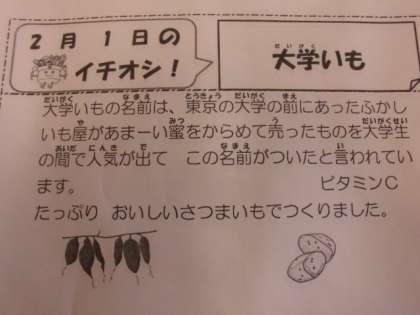 2月1日の
イチオシ！
大学いも
大学いもの名前は、東京の大学の前にあったふかし
いも屋があまーい蜜をからめて売ったものを大学生
の間で人気が出て　この名前がついたと言われてい
ます。　ビタミンC
たっぷり　おいしいさつまいもでつくりました。